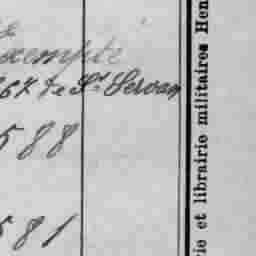 exempté
267 de St Servan
588
581
rie et librairie militaires Hen